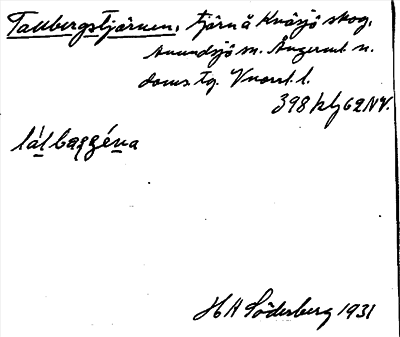 Tallbergstjärnen, tjärn å Kvåsjö skog,
Anundsjö sn. Ångerml. n.
doms. tg. Vnorrl. l.
398 klj 62 NV.
lálbaggéna
H H Söderberg 1931